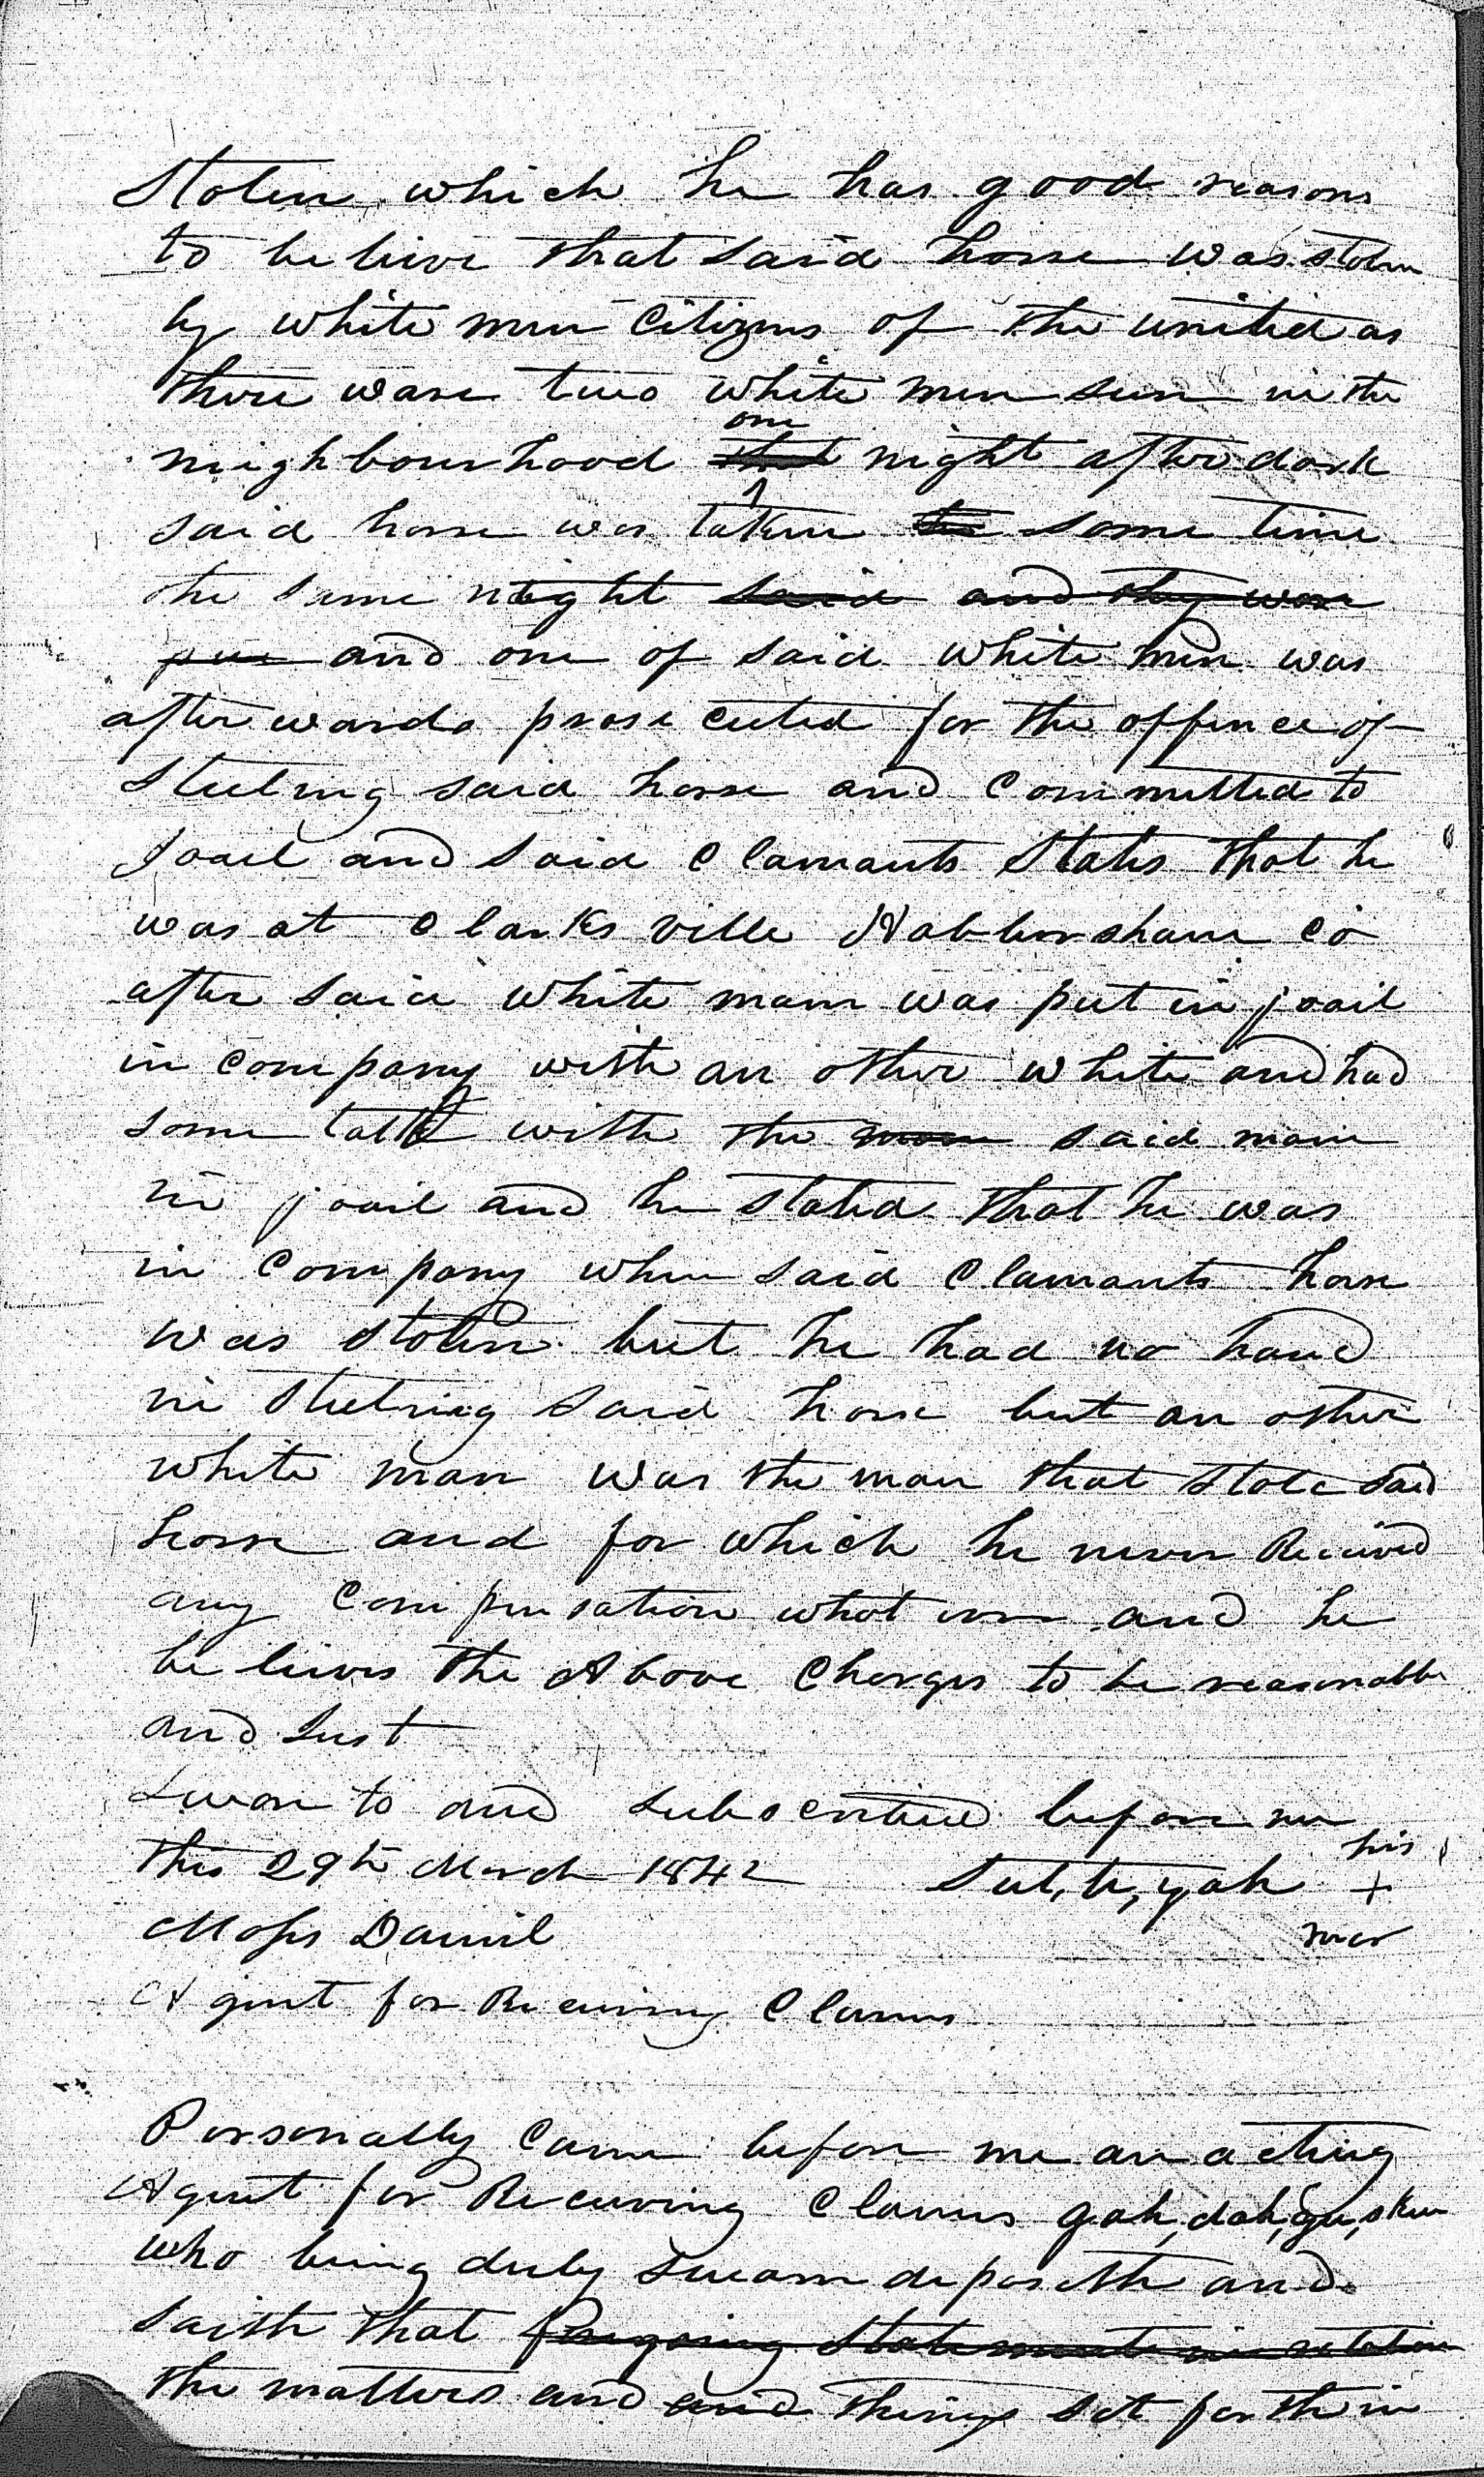 Stolen which he has good reasons
to believe that said horse was stolen
by white men Citizens of the united as
there ware two white men seen in the
neighbourhood one night after dark
said horse was taken some time
the same night said and they ware
and one of said white men was
afterwards prosecuted for the offence of
Steeling said horse and Committed to
Joail and said Clamants States that he
was at Clarksville Habbersham Co
after said white mam was put in joail
in Company with an other white and had
some talk with the said mam
in joail and he stated that he was
in Company when said Clamants horse
was stolen but he had no hand
in Steeling said horse but an other
white man was the man that Stole said
horse and for which he never Received
any Compensation what ever and he
believes the Above Charges to be reasonable
and Just
Sworn to and subscribed before me
this 29th March 1842 Sut,te,yah his +
mar
Moses Daniel
Agent for Receiving Clams
Personally Came before me an acting
Agent for Receiving Clams gah,dah,gu,skee
who being duly swarn deposeth and
saith that foregoing Statements in relation
the matters and and things set forth in